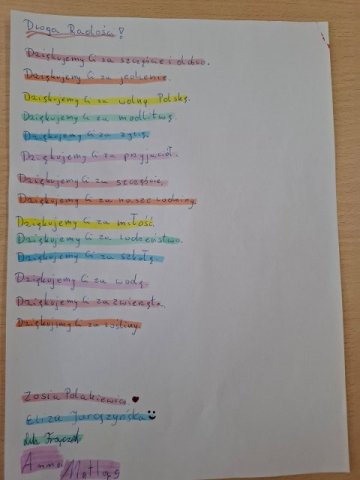 Droga Radości!
Dziękujemy Ci za szczęście i dobro.
Dziękujemy Ci za jedzenie.
Dziękujemy Ci za wolną Polskę.
Dziękujemy Ci za modlitwę.
Dziękujemy Ci za życie.
Dziękujemy Ci za przyjaciół.
Dziękujemy Ci za szczęście.
Dziękujemy Ci za nasze rodziny.
Dziękujemy Ci za miłość.
Dziękujemy Ci za rodzeństwo.
Dziękujemy Ci za szkołę.
Dziękujemy Ci za wodę.
Dziękujemy Ci za zwierzęta.
Dziękujemy Ci za rośliny.
Zosia
Eliza
Anna